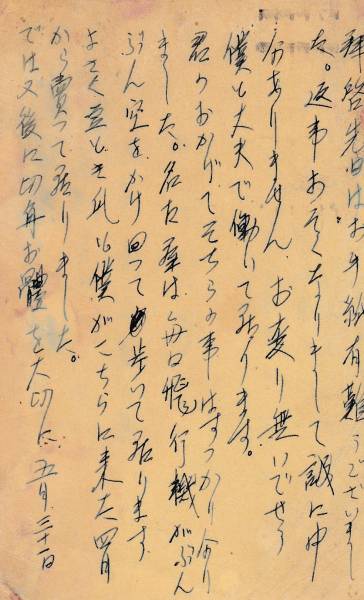 拝啓先日はお手紙有難うございまし
た。返事おそくなりまして誠に申
訳ありません、お変り無いでせう
僕も丈夫で働いて居ります。
君のおかげでそちらの事はすっかり分り
ました。名古屋は毎日飛行機がぶん
ぶん空をかけ回って歩いて居ります
よさく豆とき此も僕がこちらに来た四月
から賣って居りました。
では又後に切角お體を大切に 五月三十一日